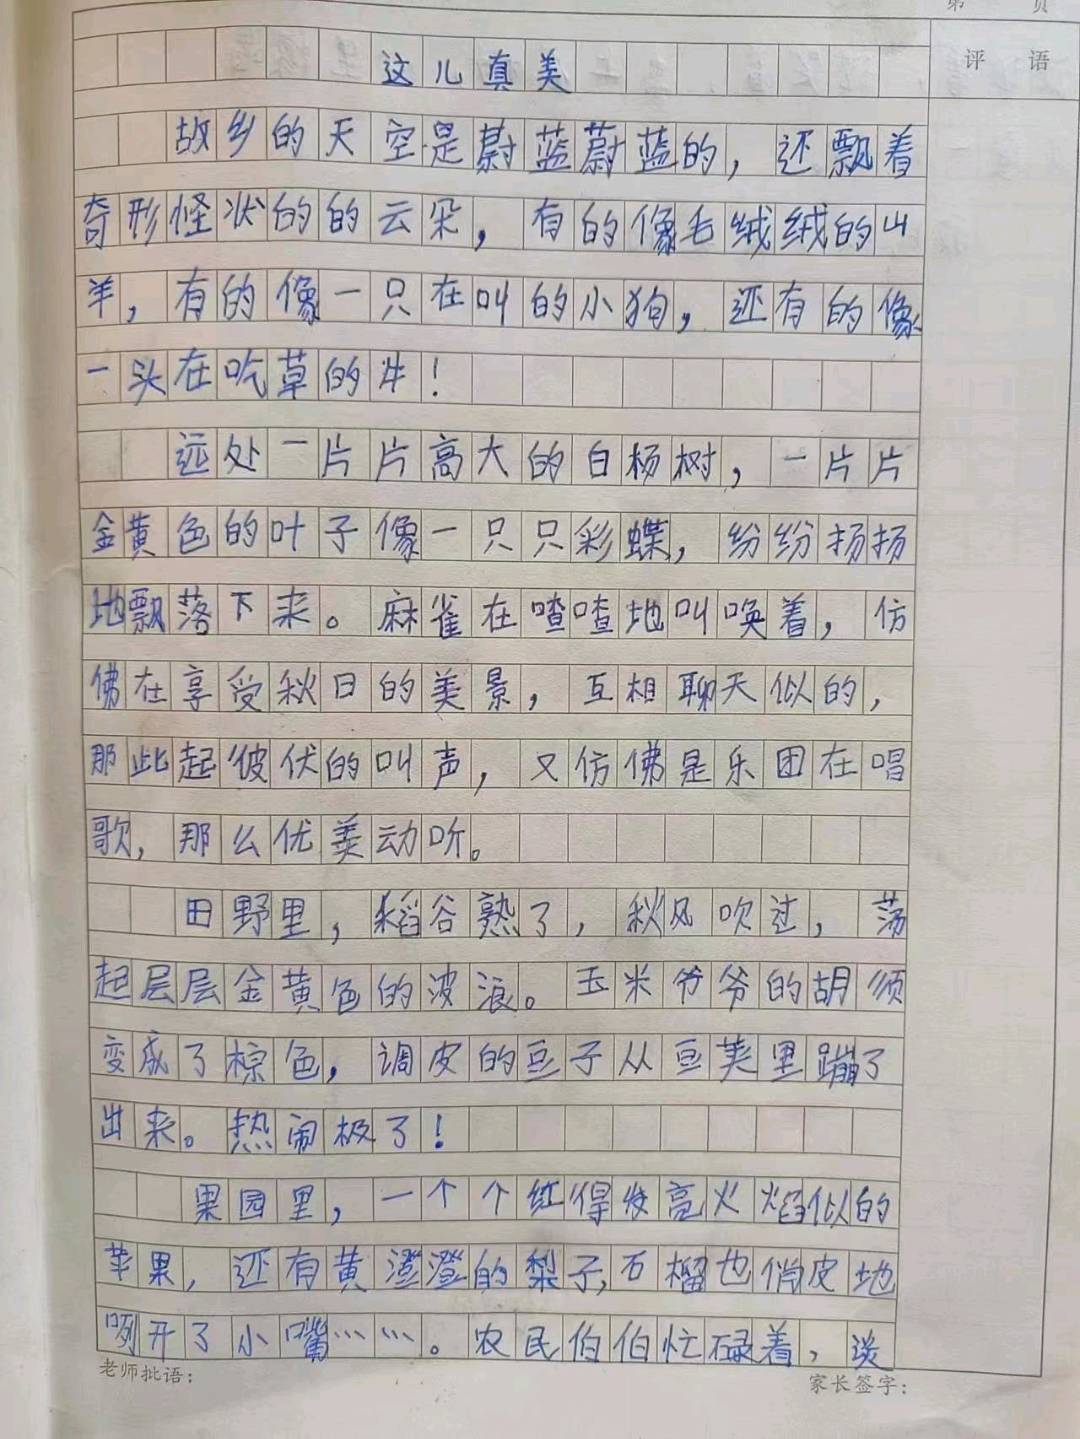 第 页
评 语
这儿真美
故乡的天空是蔚蓝蔚蓝的，还飘着
奇形怪状的的云朵，有的像毛绒绒的山
羊，有的像一只在叫的小狗，还有的像
一头在吃草的牛！
远处一片片高大的白杨树，一片片
金黄色的叶子像一只只彩蝶，纷纷扬扬
地飘落下来。麻雀在喳喳地叫唤着，仿
佛在享受秋日的美景，互相聊天似的，
那此起彼伏的叫声，又仿佛是乐团在唱
歌，那么优美动听。
田野里，稻谷熟了，秋风吹过，荡
起层层金黄色的波浪。玉米爷爷的胡须
变成了棕色，调皮的豆子从豆荚里蹦了
出来。热闹极了！
果园里，一个个红得发亮火焰似的
苹果，还有黄澄澄的梨子，石榴也俏皮地
咧开了小嘴……。农民伯伯忙碌着，谈
老师批语：
家长签字：